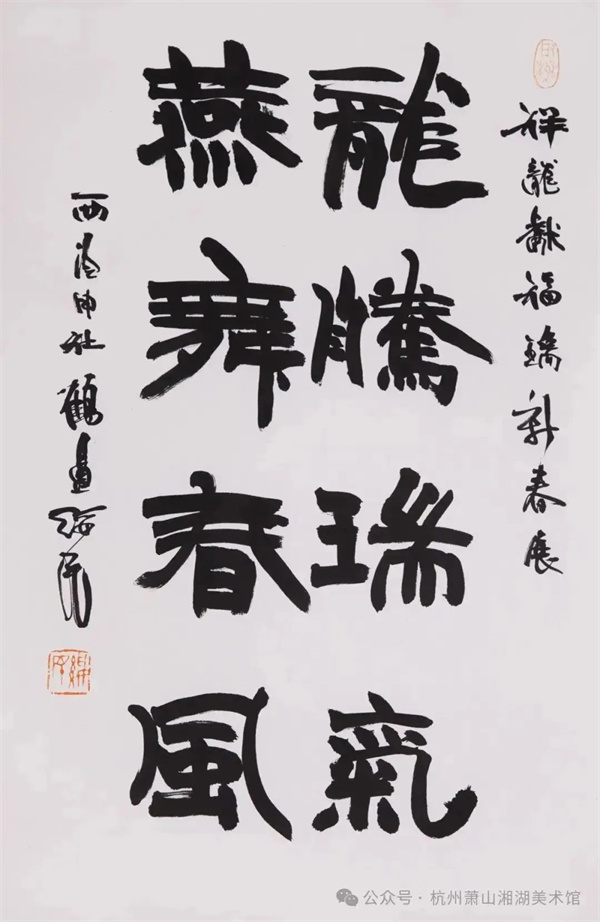 祥龍獻福新春展
龍騰瑞氣
燕舞春風
西泠印社鶴
公众号·杭州萧山湘湖美术馆